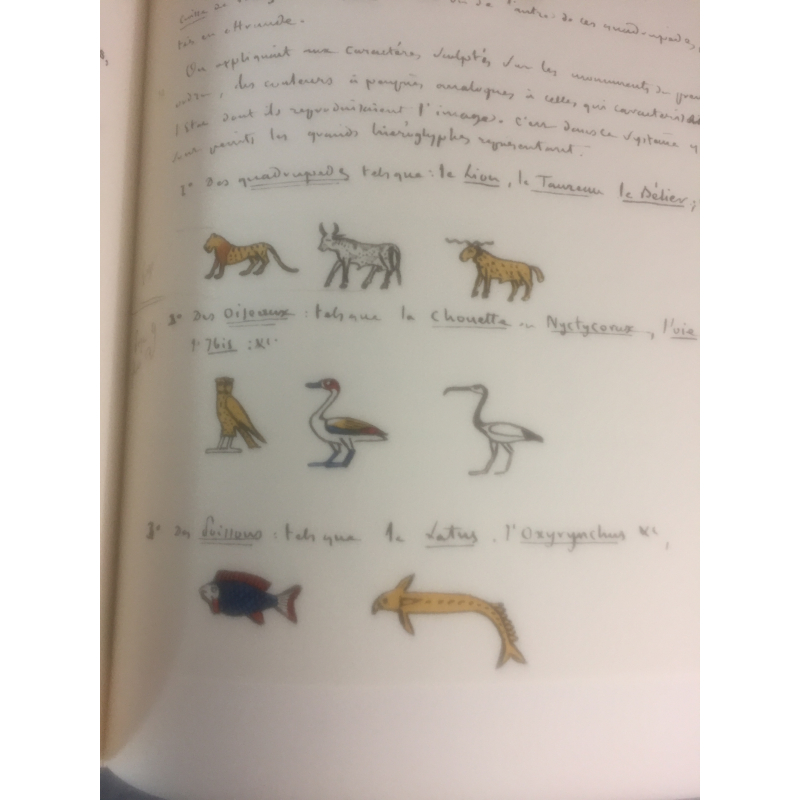 de l'autre: de ces quadrupèdes,
On appliquait aux caractères sculptés sur les monuments du
, des couleurs à peuprès analogues à celles qui
l'Etre dont ils reproduisaient l'image. c'est dans ce système
les grands hiéroglyphes représentant.
1° des quadrupedes tels que: le Lion, le Taureau le Bélier;
2° des Oiseaux: tels que la Chouette ou Nyctycorax, l'oie
l'Ibis :&c.
3° des Poissons: tels que le Latus, l'Oxyrynchus &c,